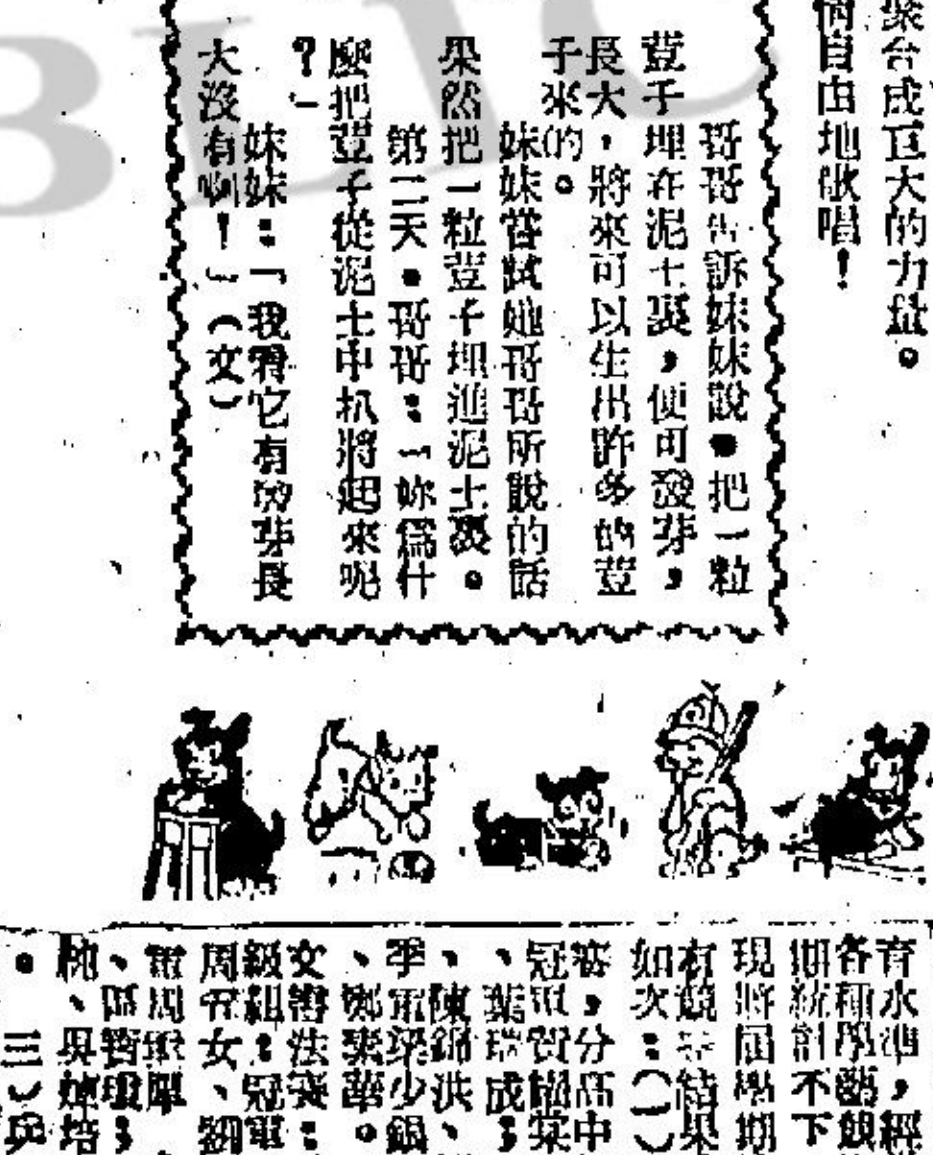 聚合成巨大的力量。
自由地歌唱！
哥哥告訴妹妹說：把一粒
荳子埋在泥土裏，便可發芽，
長大，將來可以生出許多的荳
子來的。
妹妹嘗試她哥哥所說的話
果然把一粒荳子埋進泥土裏。
第二天。哥哥：「妳爲什
麼把荳子從泥土中扒將起來呢
？」
妹妹：「我看它有發芽長
大沒有啊！」（文）
育水準，經
各種學藝競
期統計不下
現將屆學期
有競 結果
如次：（一）
審，分高中
冠軍賀 
、葉瑞成；
、陳錦洪、
季軍梁少鍋
、鄭樂華。
文書法賽：
級組：冠軍
周 女、劉
軍周 
、區寶瓊；
、吳 培
。三）
BLIC